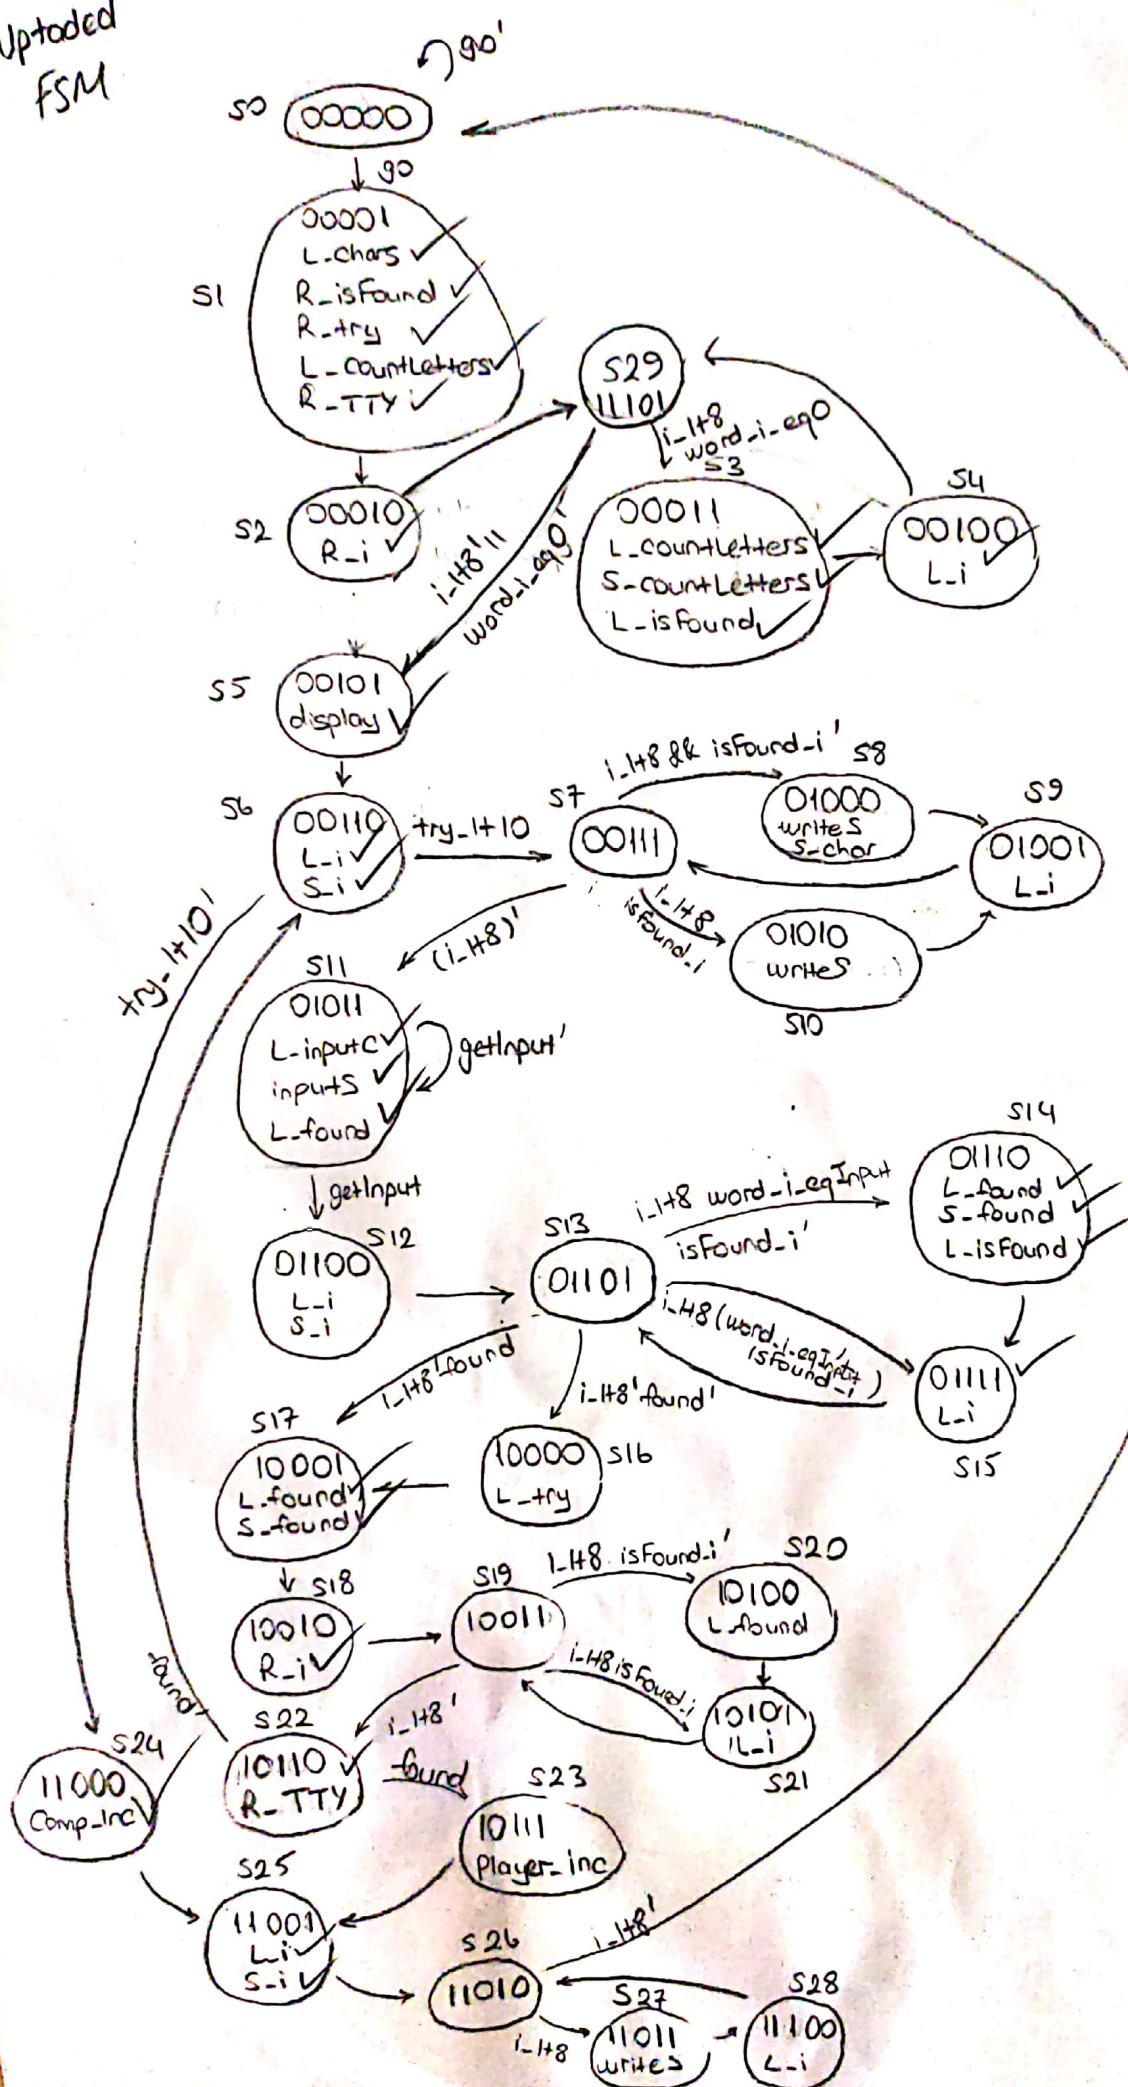 Uptaded
FSM
go'
S0
00000
go
S1
00001
L_chars
R_isFound
R_try
L_countLetters
R_TTY
S29
11101
i_lt8
word_i_eq0
S2
00010
R_i
i_lt8' ||
word_i_eq0'
S3
00011
L_countLetters
S_countLetters
L_isFound
S4
00100
L_i
S5
00101
display
S6
00110
L_i
S_i
try_lt10
try_lt10'
S7
00111
i_lt8 && isFound_i'
S8
01000
writeS
S_char
S9
01001
L_i
(i_lt8)'
i_lt8
isFound_i
01010
writeS
S10
S11
01011
L_inputC
inputS
L_found
getInput'
getInput
S12
01100
L_i
S_i
S13
01101
i_lt8 word_i_eqInput
isFound_i'
S14
01110
L_found
S_found
L_isFound
i_lt8 (word_i_eqInput'+
isFound_i)
01111
L_i
S15
i_lt8' found
i_lt8' found'
S17
10001
L_found
S_found
10000
L_try
S16
S18
10010
R_i
S19
10011
i_lt8 isFound_i'
S20
10100
L_found
i_lt8 isFound_i
10101
L_i
S21
found'
i_lt8'
S22
10110
R_TTY
found
S23
10111
Player_inc
S24
11000
Comp_Inc
S25
11001
L_i
S_i
S26
11010
i_lt8'
i_lt8
S27
11011
writeS
S28
11100
L_i